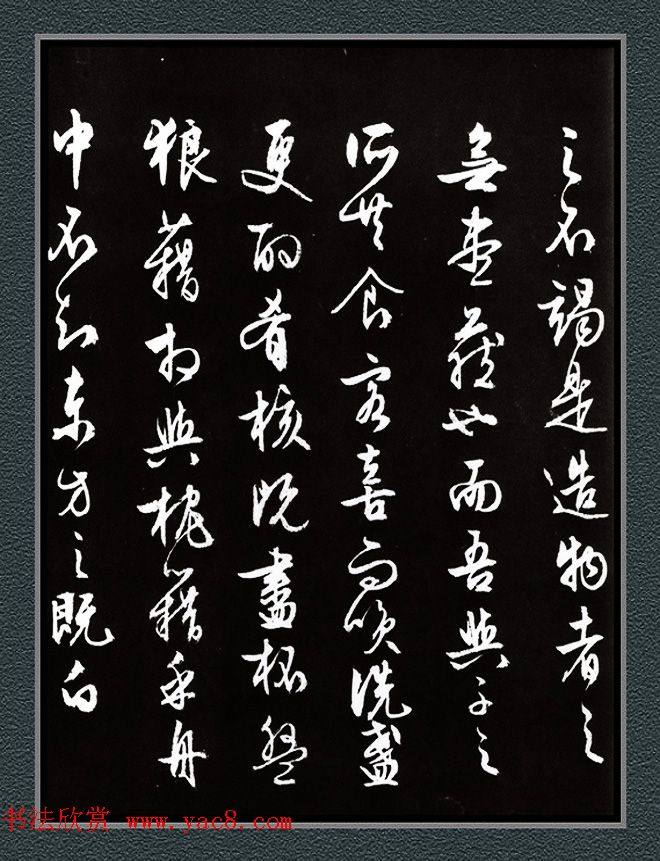 之不竭是造物者之
無盡藏也而吾與子之
所共食客喜而笑洗盞
更酌肴核既盡杯盤
狼藉相與枕藉乎舟
中不知東方之既白
书法欣赏 www.yac8.com